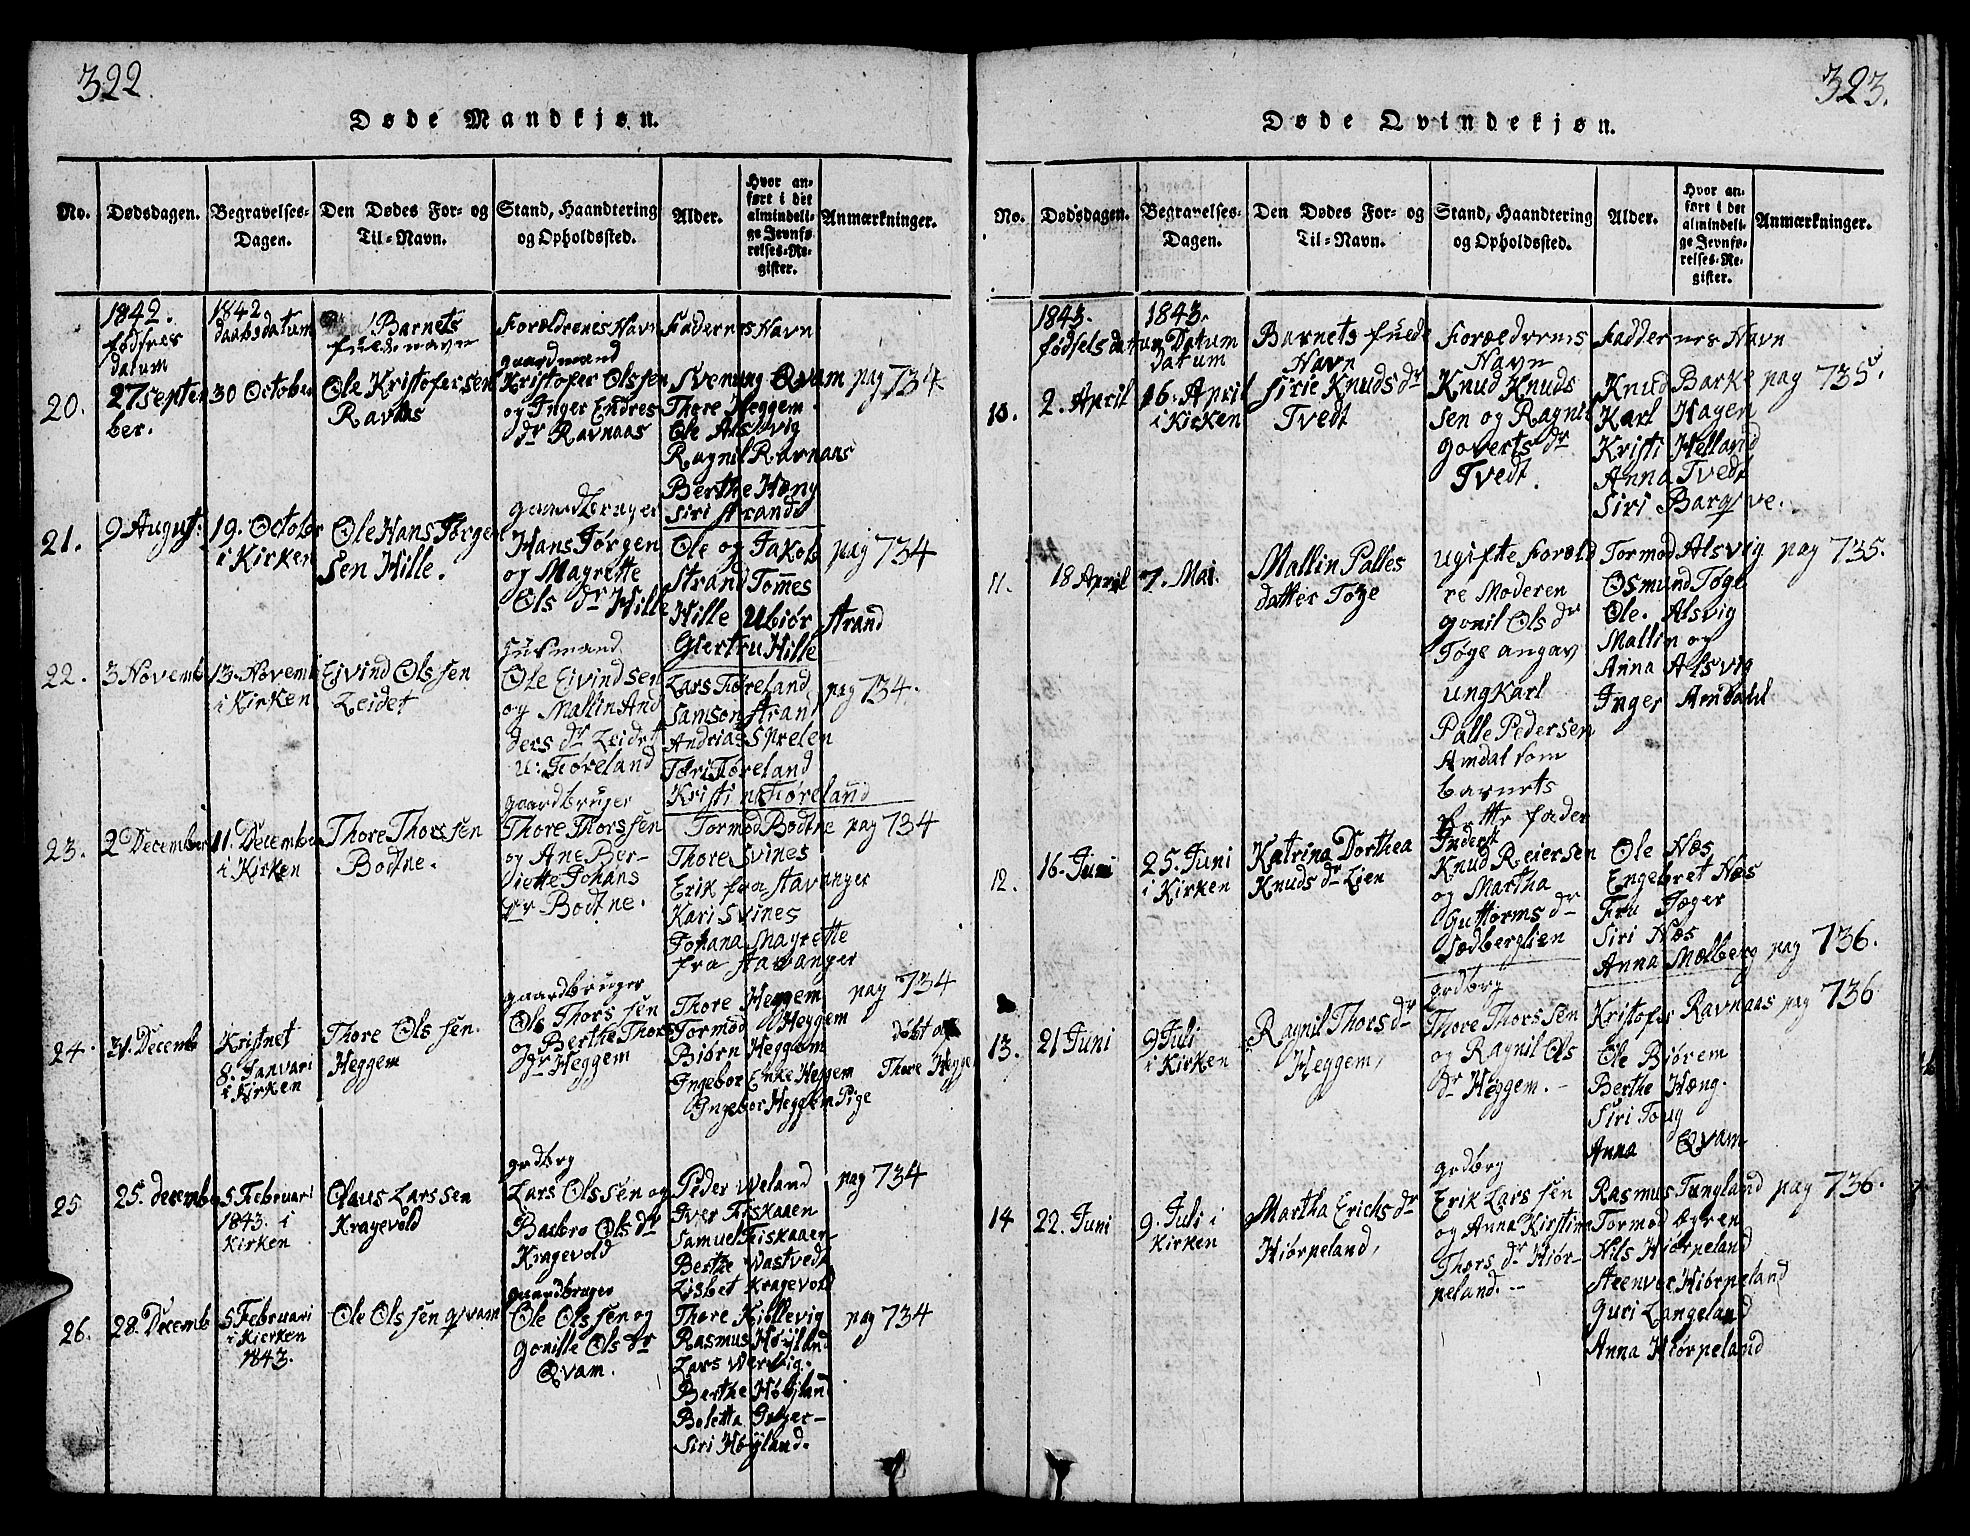 322.
Døde Mandkjøn.
No.
Dødsdagen.
Begravelses-
Dagen.
Den Dødes For- og
Til-Navn.
Stand, Haandtering
og Opholdssted.
Alder.
Hvor an-
ført i det
almindeli-
ge Jevnfø-
relses-Re-
gister.
Anmærkninger.
1842.
fødsels
datum
1842
daabsdatum
Barnets
fulde navn
Forældrenes Navn
Faddernes Navn
20.
27 septem
ber.
30 October
Ole Kristofersen
Ravnas
gaardmand
Kristofer Olssen
og Inger Endres
dr Ravnaas
Svenung Qvam
Thore Heggem
Ole Alsvig
Ragnil Ravnaas
Berthe Hæng
Siri Strand
pag 734
21.
9 August:
19. October
i Kirken
Ole Hans Jørgen
Sen Hille.
gaardbruger
Hans Jørgen
og Magrette
Ols dr Hille
Ole og Jakob
Strand Tomes
Hille Ubiør Strand
Giertru Hille
pag 734
22.
3 Novemb
13. Novemb
i Kirken
Eivind Olssen
Leidet
husmand
Ole Eivindsen
og Mallin And
ders dr Leidet
u: Føreland
Lars Føreland
Samson Stran
Andrias Sprelen
Tøri Føreland
Kristi Føreland
pag 734.
23.
2 December
11. December
i Kirken
Thore Thorssen
Bodtne.
gaardbruger
Thore Thorssen
og Ane Ber-
iette Johans
dr Bodtne.
Tormod Bodtne
Thore Svines
Erik fra Stavanger
Kari Svines
Johana Magrette
fra Stavanger
pag 734
24.
31. Decemb
Kristnet
8. Januari
i Kirken
Thore Olssen.
Heggem
gaardbruger
Ole Thorssen
og Berthe Thors
dr Heggem
Thore Heggem
Tormod Heggem
Biørn Heggem
Ingebor Enke Heggem
Ingebor Heggem Pige
pag 734
døbt af
Thore Hegge
25
25. december
5 Februari
1843. i
Kirken
Olaus Larssen
Kragevold
grdbrg
Lars Olssen og
Barbro Ols dr
Kragevold
Peder Weland
Iver Fiskaaen
Samuel Fiskaaen
Berthe Wastvedt
Lisbet Kragevold
pag 734
26.
28. Decemb
5 Februari
i Kierken
1843.
Ole Olssen qvam
gaardbruger
Ole Olssen og
Gonille Ols dr
Qvam.
Thore Kiøllevig
Rasmus Høyland
Lars Wervig.
Berthe Høyland
Boletta
Siri Høyland.
pag 734
323.
Døde Qvindekjøn.
No.
Dødsdagen.
Begravelses-
Dagen.
Den Dødes For- og
Til-Navn.
Stand, Haandtering
og Opholdssted.
Alder.
Hvor an-
ført i det
almindeli-
ge Jevnfø-
relses-Re-
gister.
Anmærkninger.
1843.
fødsels datum
1843.
Datum
datum
Barnets fulde
Navn
Forælderens
Navn
Faddernes Navn
10.
2. April
16. April
i Kirken
Sirie Knuds dr
Tvedt
Knud Knuds
sen og Ragnil
goverts dr
Tvedt.
Knud Barke
Karl Hagen
Kristi Helland
Anna Tvedt
Siri Bargsve.
pag 735.
11.
18 April
7. Mai.
Mallin Palles
datter Tøge
ugifte Foræld
re Moderen
gonil Ols dr
Tøge angav
ungkarl
Palle Pedersen
Amdal som
barnets
rette fader
Tormod Alsvig
Osmund Tøge
Ole. Alsvig
Mallin og
Anna Alsvig
Inger Amdahl
pag 735.
12.
16. Juni
25. Juni
i Kirken
Katrina Dorthea
Knuds dr Lien
Inderst
Knud Reiersen
og Martha
Guttorms dr
Sødberglien
Ole Næs
Engebret Næs
Fru Jæger
Siri Næs
Anna Mælberg
pag 736.
13.
21 Juni
9 Juli
i Kirken
Ragnil Thors dr
Heggem,
grdbrg
Thore Thorssen
og Ragnil Ols
dr Heggem. -
Kristofer Ravnaas
Ole Bjørem
Berthe Hæng.
Siri Toug
Anna Qvam
pag 736
14
22. Juni
9. Juli i
Kirken
Martha Erichs dr
Hiørpeland,
grdbrg
Erik Larssen
og Anna Kirstina
Thors dr Hiør-
peland. --
Rasmus Tungland
Tormod Øgren
Nils Hiørpeland
Steenvor Hiørpeland
Guri Langeland
Anna Hiørpeland
pag 736.